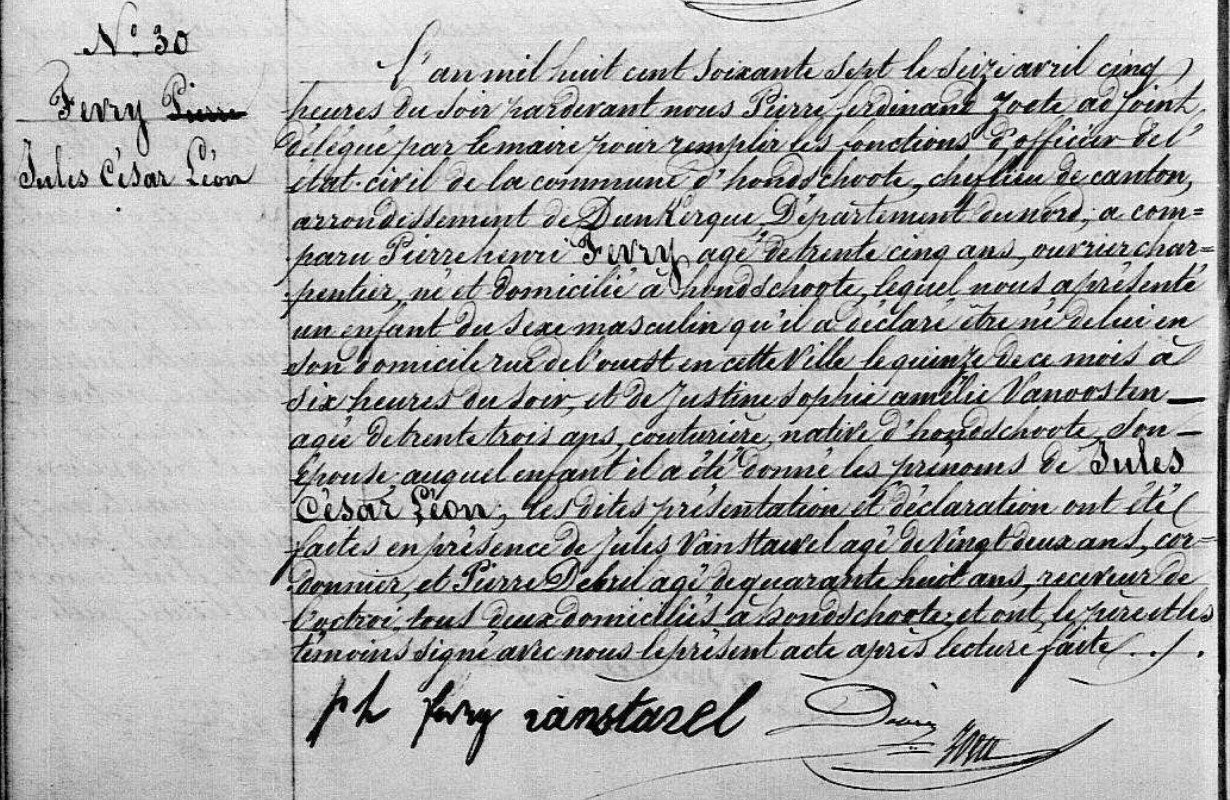 N° 30
Fevry Pierre
Jules César Léon
L'an mil huit cent soixante sept le seize avril cinq
heures du soir pardevant nous Pierre ferdinand Zoete adjoint
délégué par le maire pour remplir les fonctions d'officier de l'
état-civil de la commune d'hondschoote, chef lieu de canton,
arrondissement de Dunkerque, Département du nord, a com=
paru Pierre henri Fevry, agé de trente cinq ans, ouvrier char=
pentier, né et domicilié à hondschoote, lequel nous a présenté
un enfant du sexe masculin qu'il a déclaré être né de lui en
son domicile rue de l'ouest en cette ville le quinze de ce mois à
six heures du soir, et de Justine sophie amélie Vanoosten
agée de trente trois ans, couturière, native d'hondschoote, son
épouse auquel enfant il a été donné les prénoms de Jules
César Léon, les dites présentation et déclaration ont été
faites en présence de Jules Vanstavel agé de vingt deux ans, cor=
donnier, et Pierre Debril agé de quarante huit ans, receveur de
l'octroi, tous deux domiciliés à hondschoote; et ont, le père et les
témoins signé avec nous le présent acte après lecture faite . . / .
ph fevry vanstavel